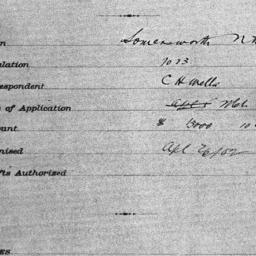 n Somersworth N
lation 7023
espondent C H Wells
of Application
unt $ 13000 10
mised Apl 26/02
fts Authorized